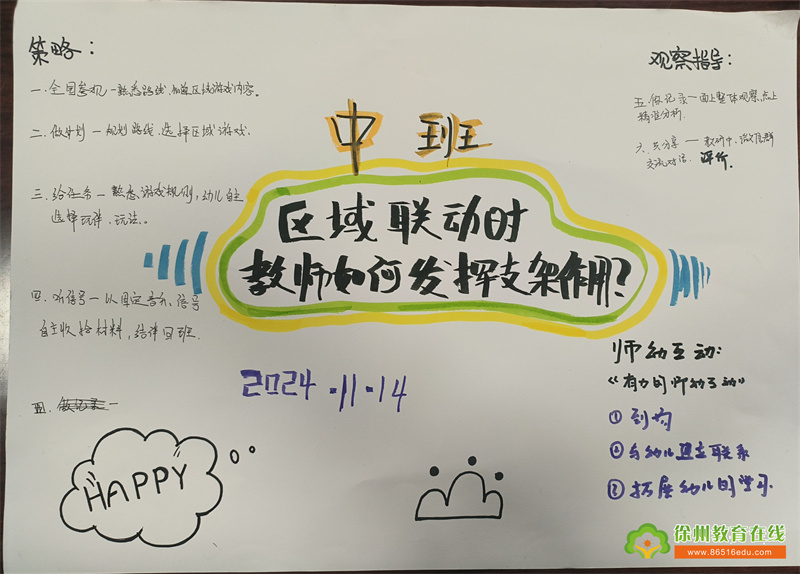 策略：
一、全园参观—熟悉路线、加道区域游戏内容。
二、做计划—规划路线、选择区域游戏。
三、给任务—熟悉游戏规则，幼儿自主
选择玩伴、玩法。
四、听信号—以固定音乐、信号
自主收拾材料，结伴回班.
五、
中班
区域联动时
教师如何发挥支架作用？
2024.11.14
HAPPY
观察指导：
五、做记录—面上整体观察，点上
精准分析.
六、共分享—教研中、微信群
交流对话、评价.
师幼互动：
《有力的师幼互动》
①到均
②与幼儿建立联系
③拓展幼儿的学习.
徐州教育在线
www.86516edu.com